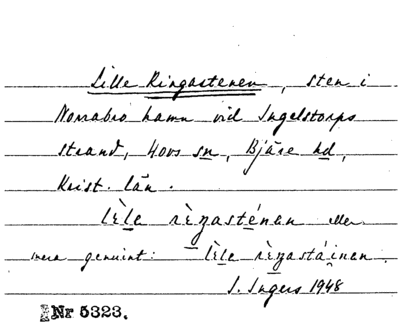 Lille Ringastenen, sten i
Norrabro hamn vid Ingelstorps
strand, Hovs sn, Bjäre hd,
Krist. län.
lèle rèŋasténen eller
mera genuint: lèle rèŋastáinen.
I. Ingers 1948
Nr 5323.